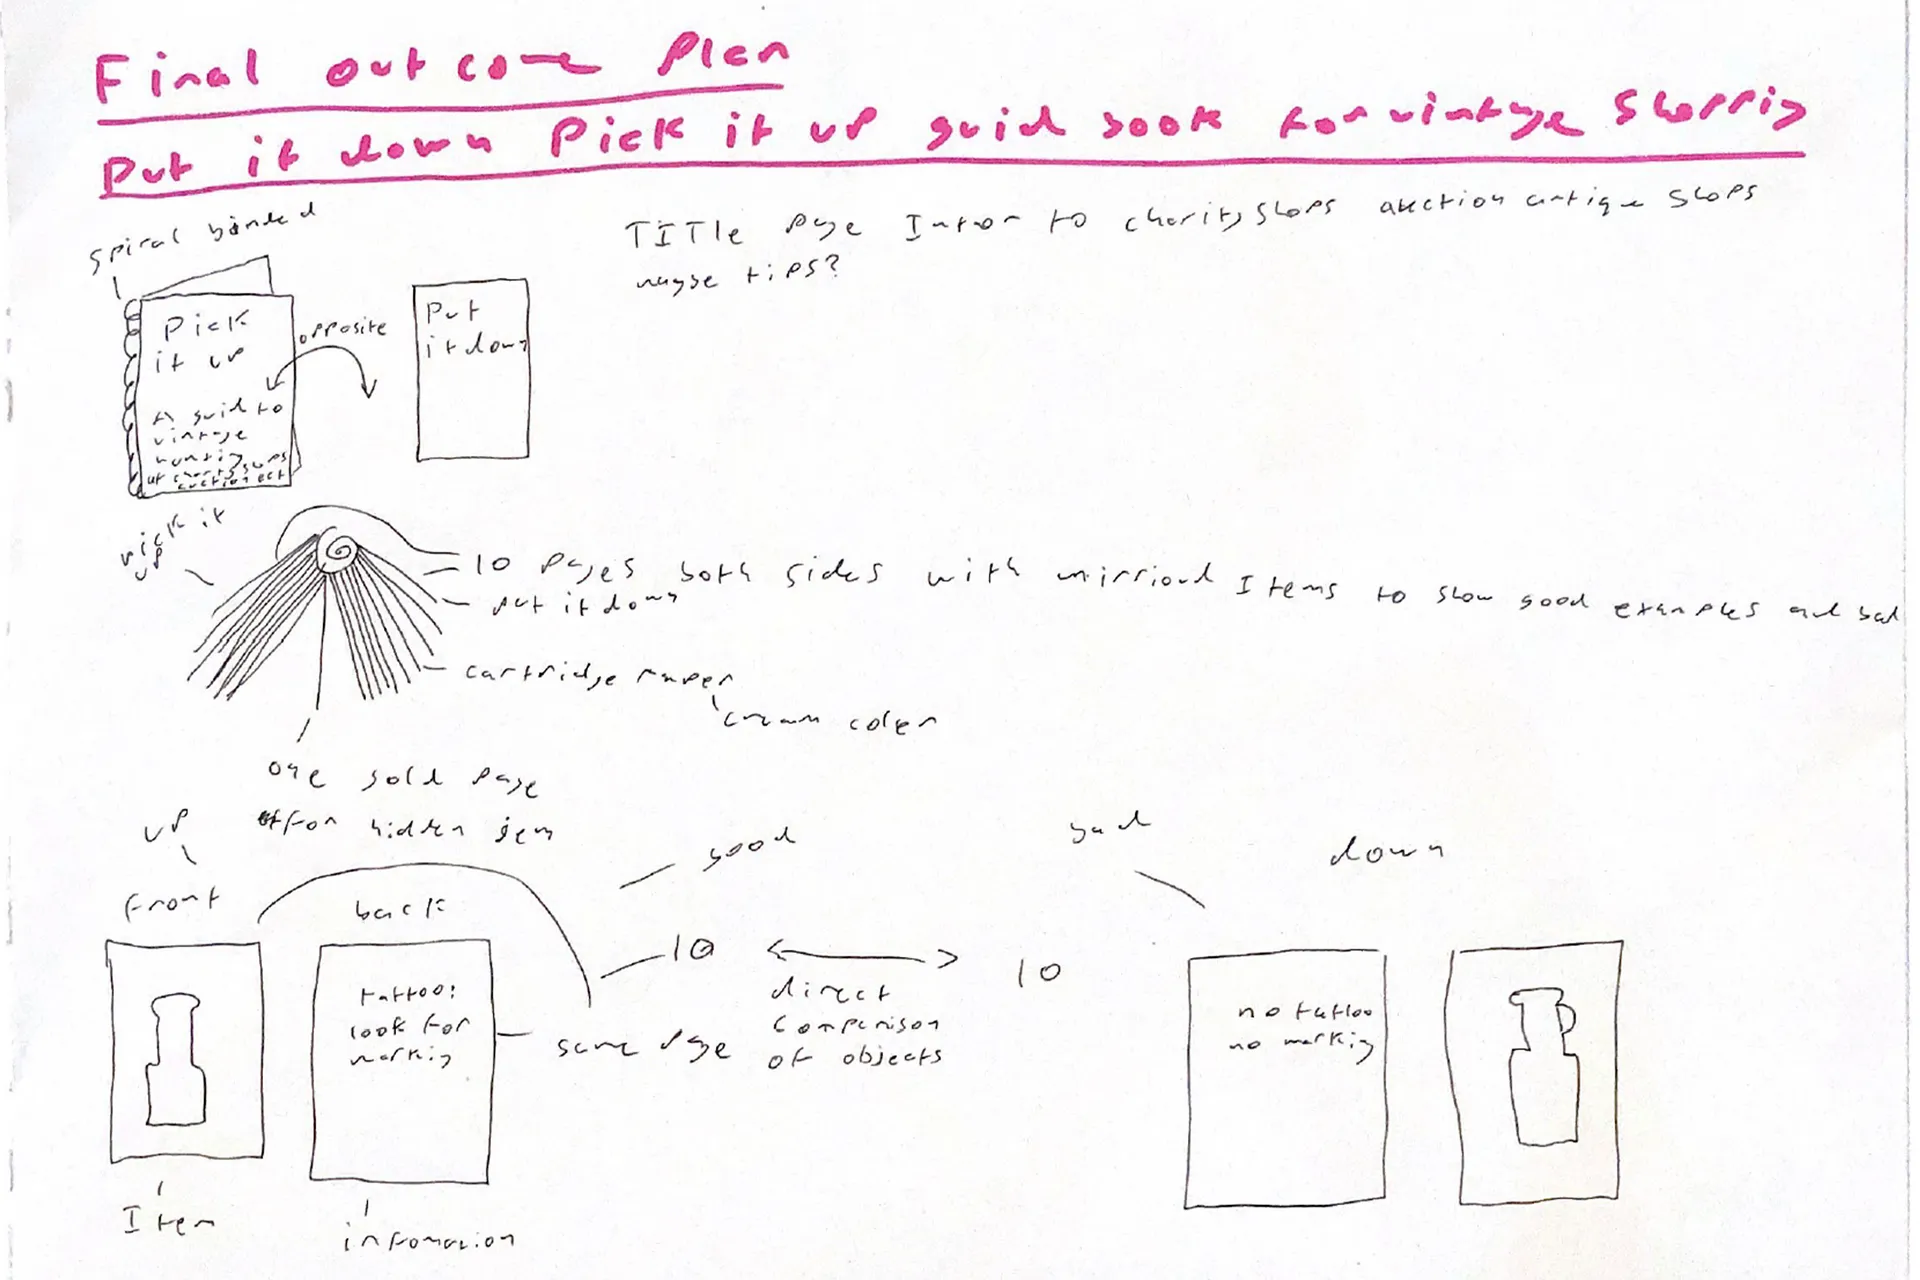 Final outcome Plan
Put it down Pick it up guid book for vintage Shoppig
spiral binded
TITTle page Intror to charity shops auction antique shops
maybe tips?
Pick
it up
opposite
Put
it down
A guid to
vintage
huntig
at charity shops
auction ect
pick it
up
10 pages both sides with mirriord Items to show good examples and bad
put it down
cartridge paper
cream coler
one gold page
for hidden gem
up
good
bad
down
front
back
10
10
direct
comperison
of objects
tattoo:
look for
markig
same page
no tattoo
no markig
Item
infomation